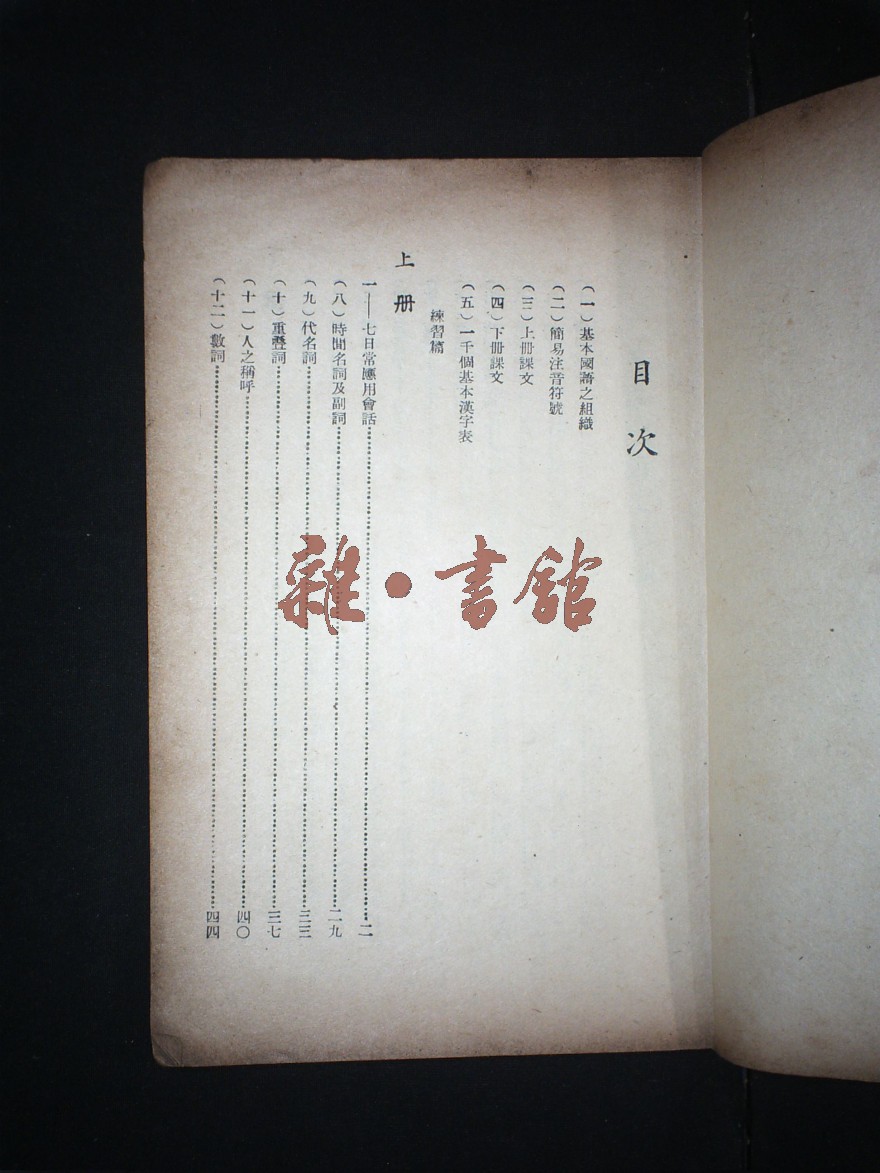 目次
(一)基本國語之組織
(二)簡易注音符號
(三)上冊課文
(四)下冊課文
(五)一千個基本漢字表
練習篇
上冊
一——七日常應用會話…………二
(八)時間名詞及副詞…………二九
(九)代名詞…………三三
(十)重疊詞…………三七
(十一)人之稱呼…………四〇
(十二)數詞…………四四
雜·書館